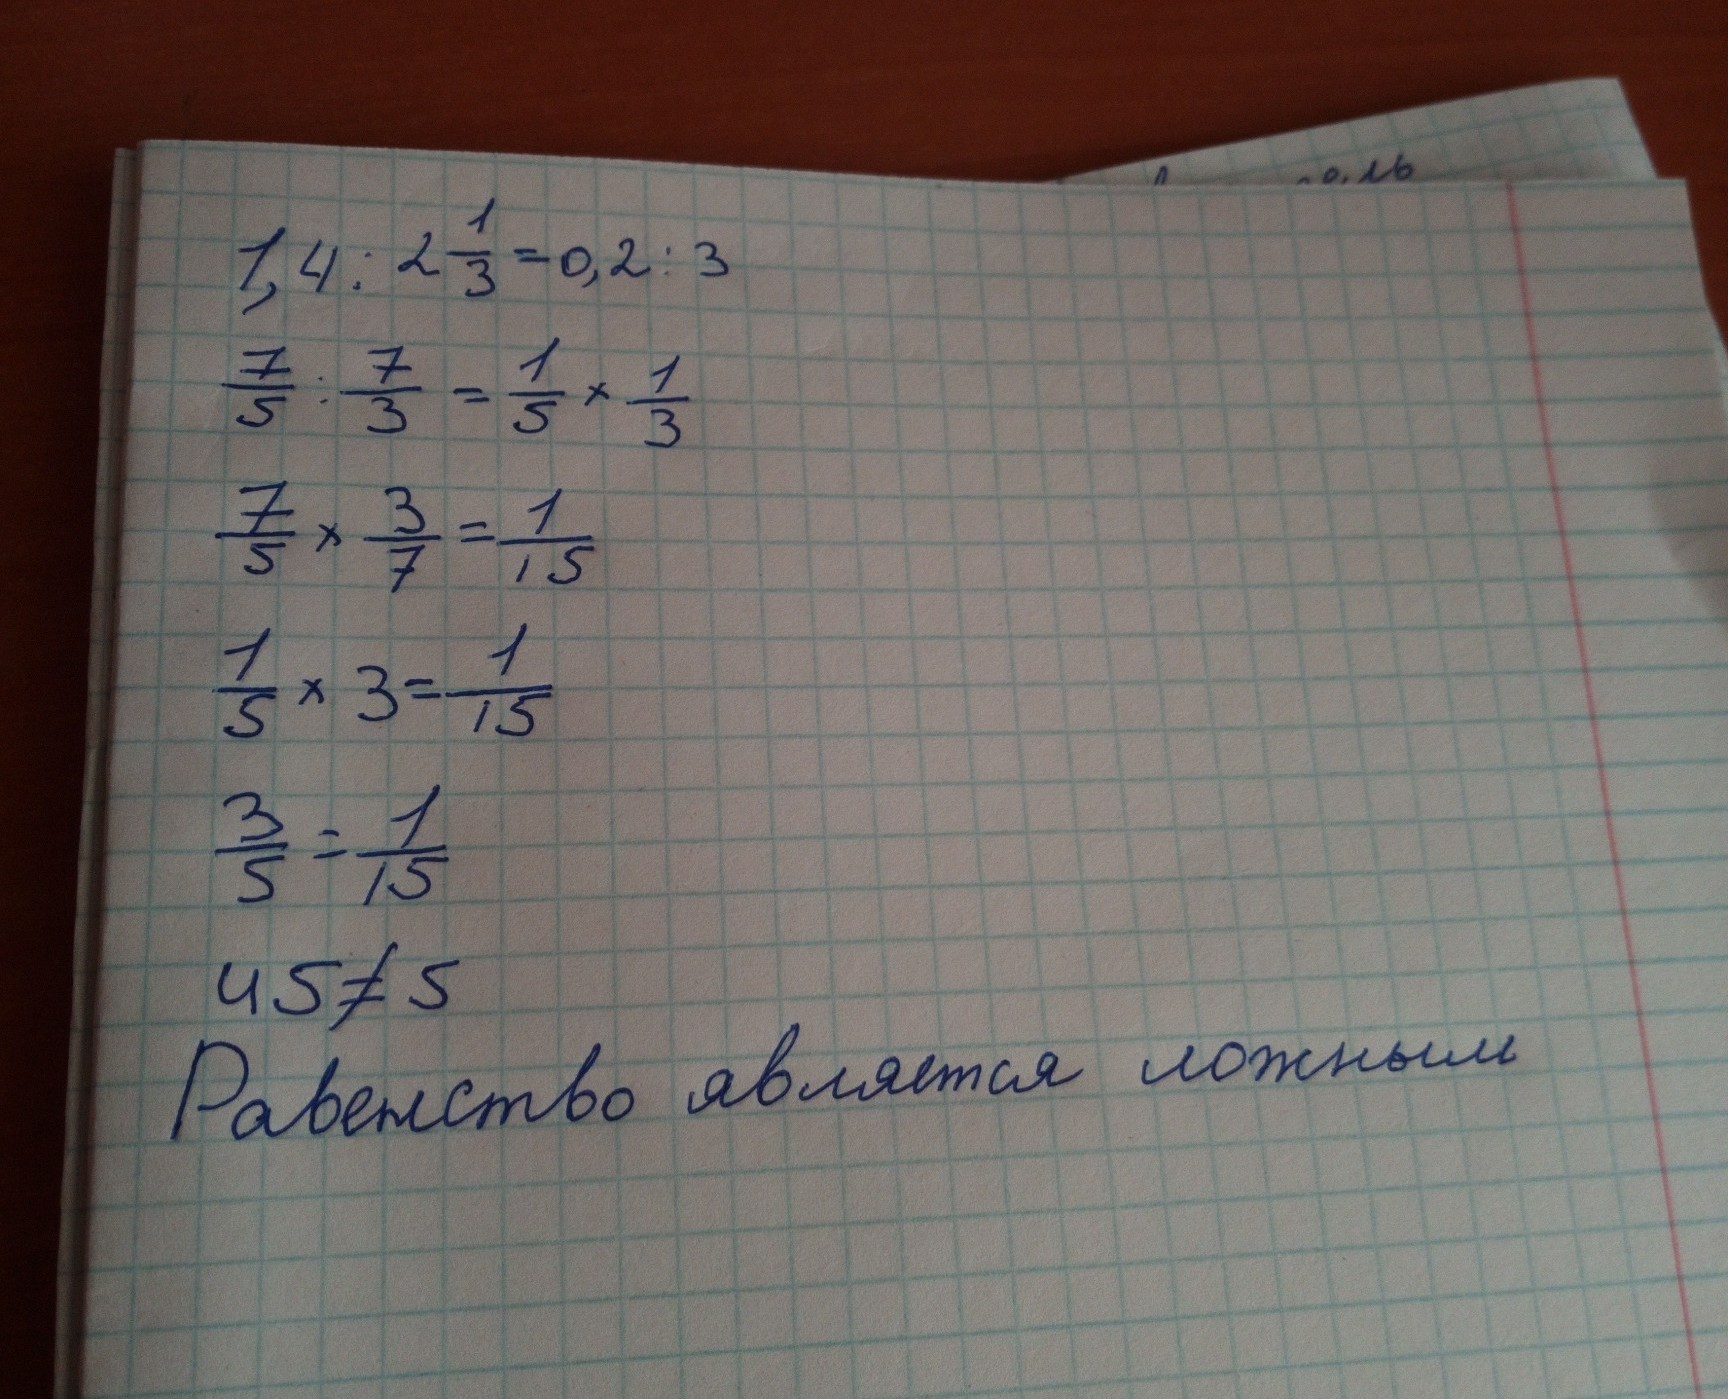 1,4 : 2 1/3 = 0,2 : 3
7/5 : 7/3 = 1/5 × 1/3
7/5 × 3/7 = 1/15
1/5 × 3 = 1/15
3/5 = 1/15
45 ≠ 5
Равенство является ложным